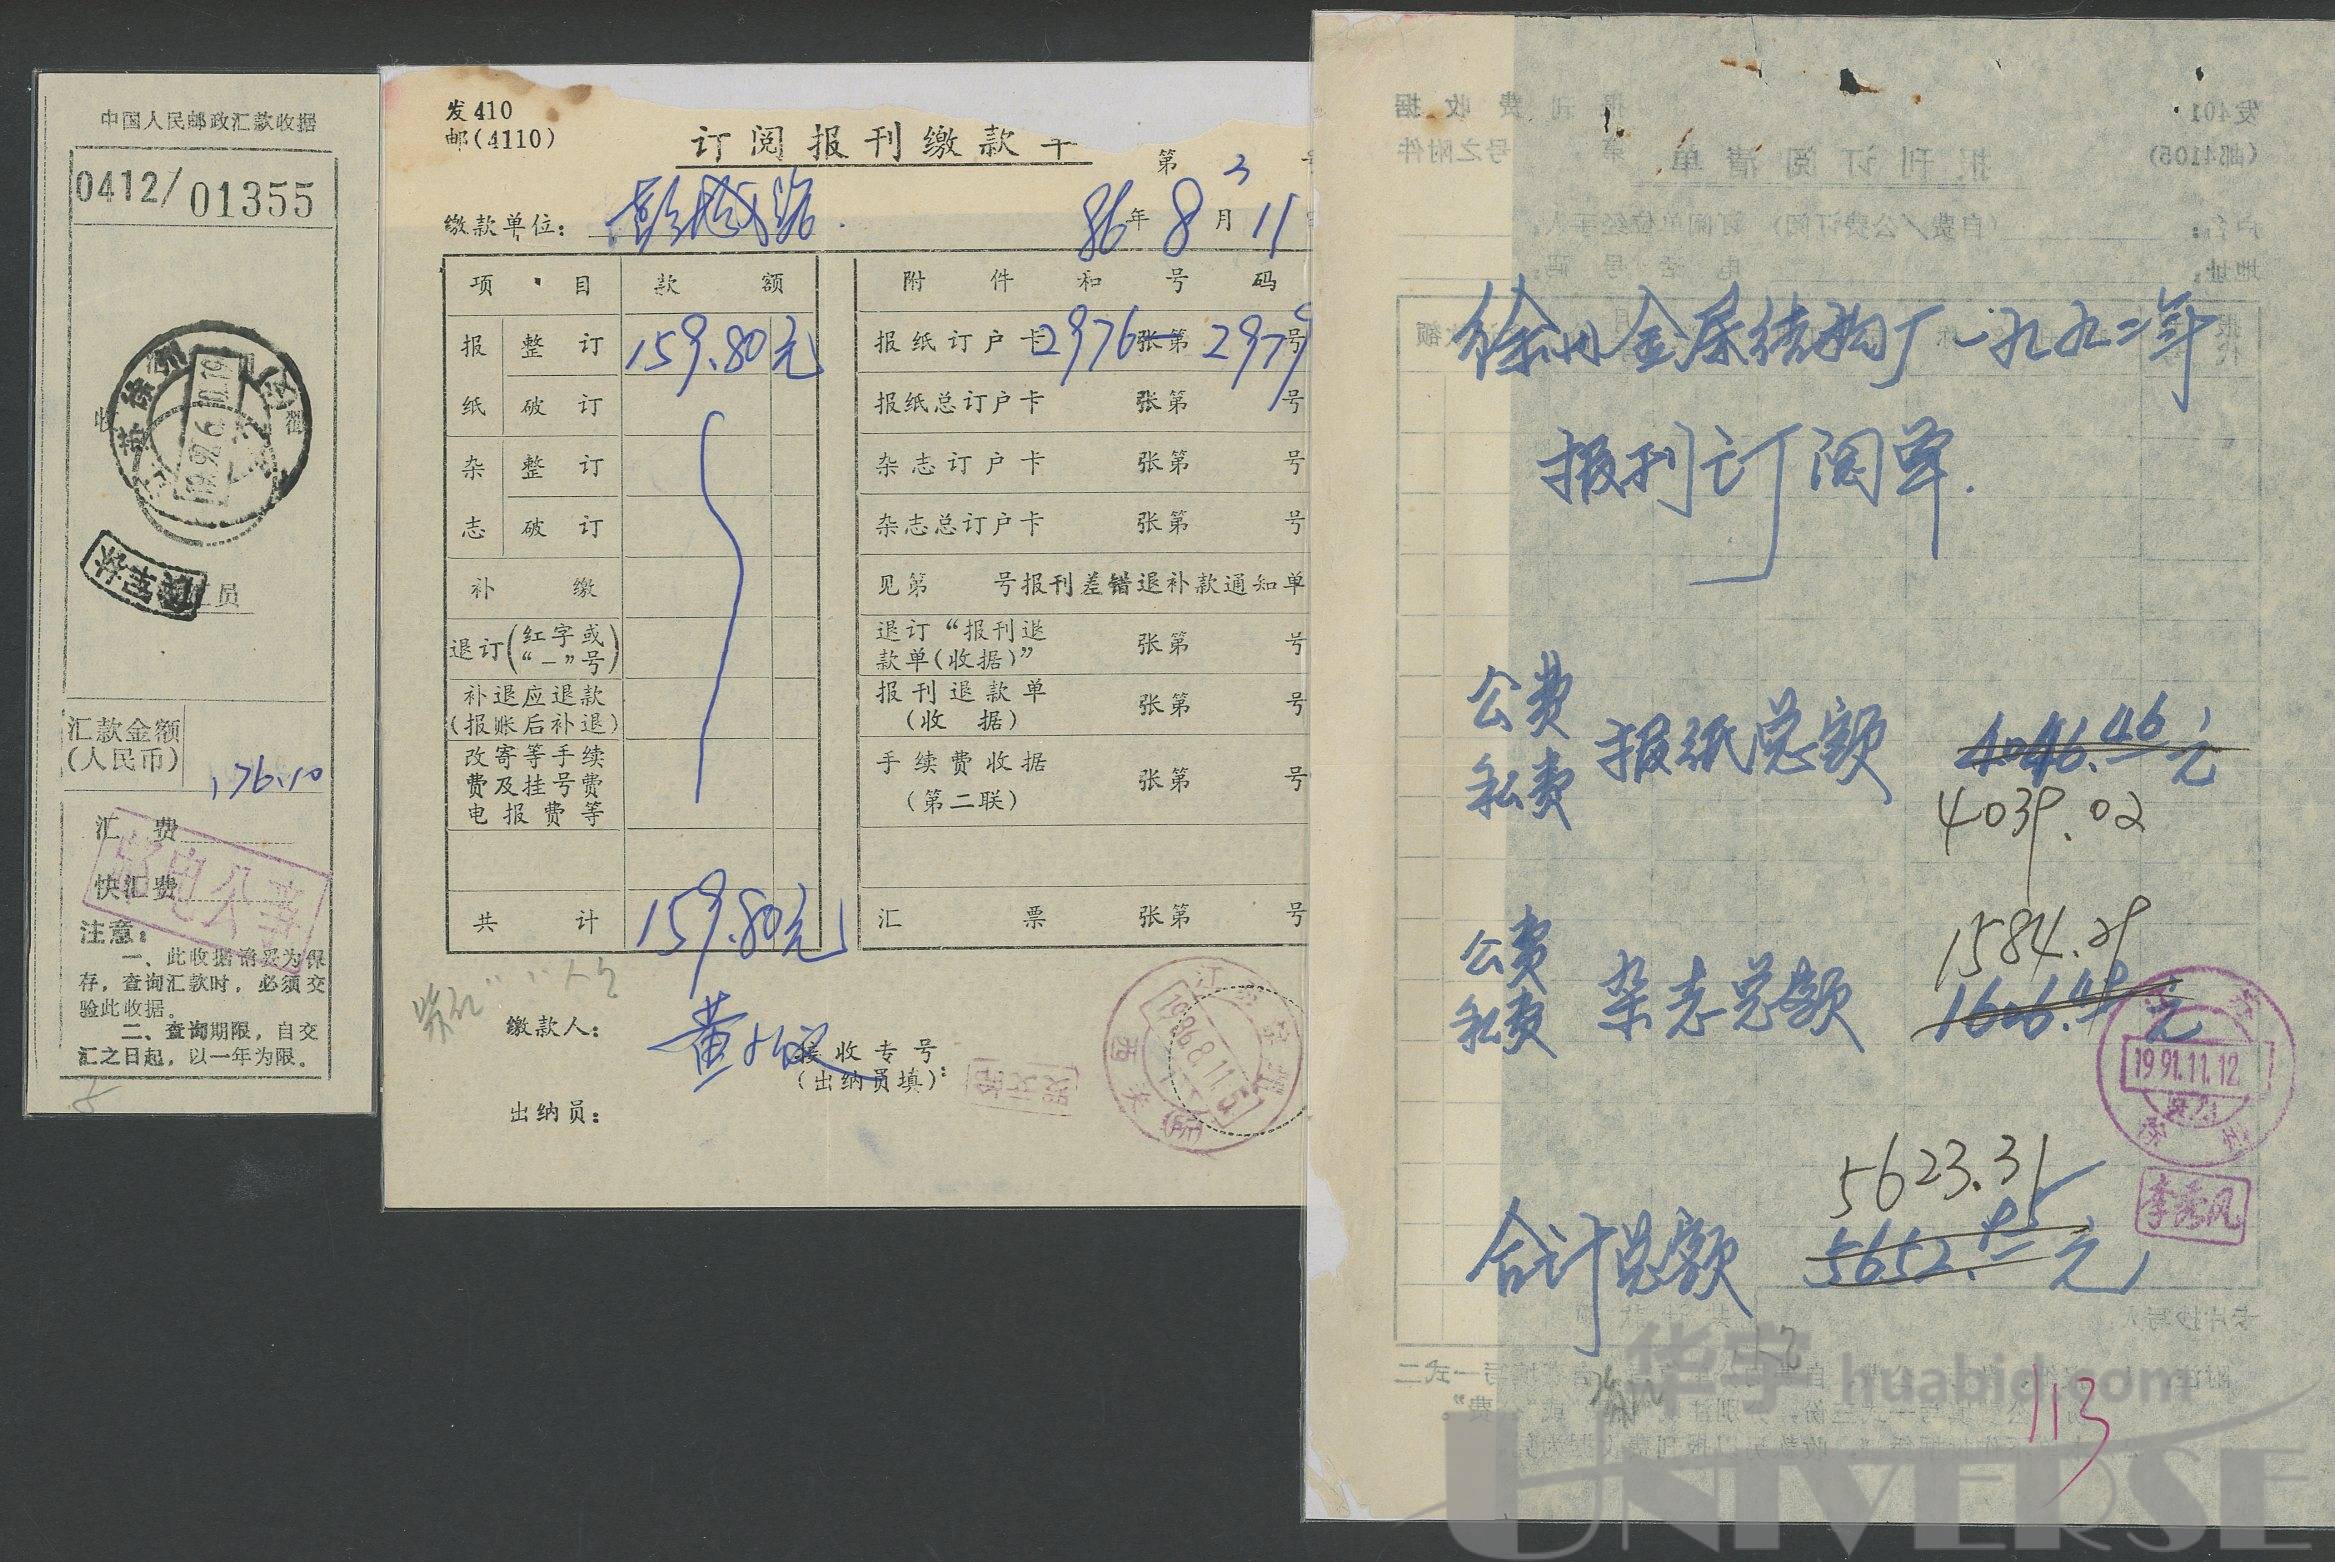 中国人民邮政汇款收据
0412/01355
收
员
汇款金额
(人民币)
176.10
汇 费
快汇费
邮电公事
注意：
一、此收据请妥为保
存，查询汇款时，必须交
验此收据。
二、查询期限，自交
汇之日起，以一年为限。
发410
邮(4110)
订阅报刊缴款单
第 3
缴款单位：
86年8月11
项 目 款 额
报 整 订 159.80元
纸 破 订
杂 整 订
志 破 订
补 缴
退订(红字或“－”号)
补退应退款
(报账后补退)
改寄等手续
费及挂号费
电报费等
共 计 159.80元
附 件 和 号 码
报纸订户卡 2976 张第 2979 号
报纸总订户卡 张第 号
杂志订户卡 张第 号
杂志总订户卡 张第 号
见第 号报刊差错退补款通知单
退订“报刊退
款单(收据)” 张第 号
报刊退款单
(收 据) 张第 号
手续费收据
(第二联) 张第 号
汇 票 张第 号
缴款人：
接收专号
(出纳员填)：
出纳员：
江苏
1986.8.11.15
西关
发401
(邮4105)
报刊费收据
第 号之附件
报刊订阅清单
户名：
(自费／公费订阅) 订阅单位经手人：
地址：
电话号码：
徐州金属结构厂一九九二年
报刊订阅单.
公费
私费
报纸总额
4046.46元
4039.02
公费
私费
杂志总额
1584.29
1606.49元
1991.11.12
李秀凤
5623.31
合计总额
5652.95元
113
华宇 huabid.com
UNIVERSE